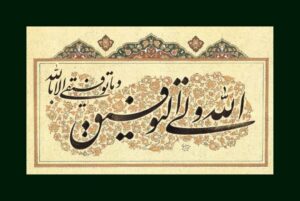 الله ولی التوفیق
و ما توفیقی الا بالله